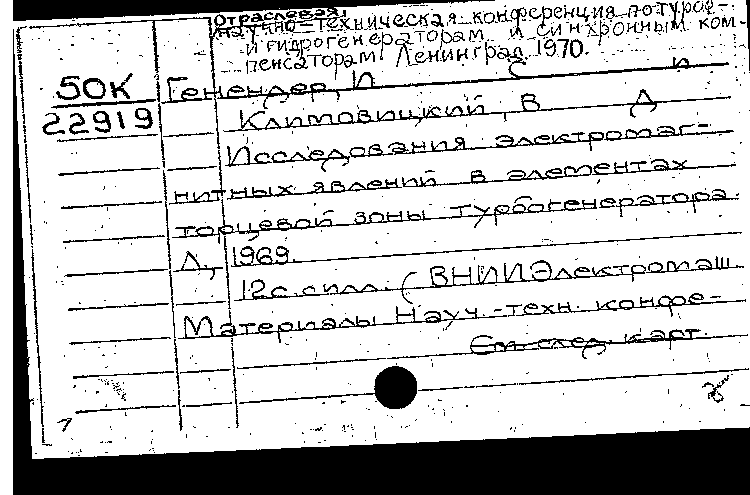 Отраслевая
научно-техническая конференция по турбо-
и гидрогенераторам и синхронным ком-
пенсаторам. Ленинград. 1970.
50К Генендер, П С и
22919 Климовицкий, В Д
Исследования электромаг-
нитных явлений в элементах
торцевой зоны турбогенератора.
Л., 1969.
12с. с илл. (ВНИИЭлектромаш
Материалы Науч.-техн. конфе-
См. след. карт.
1